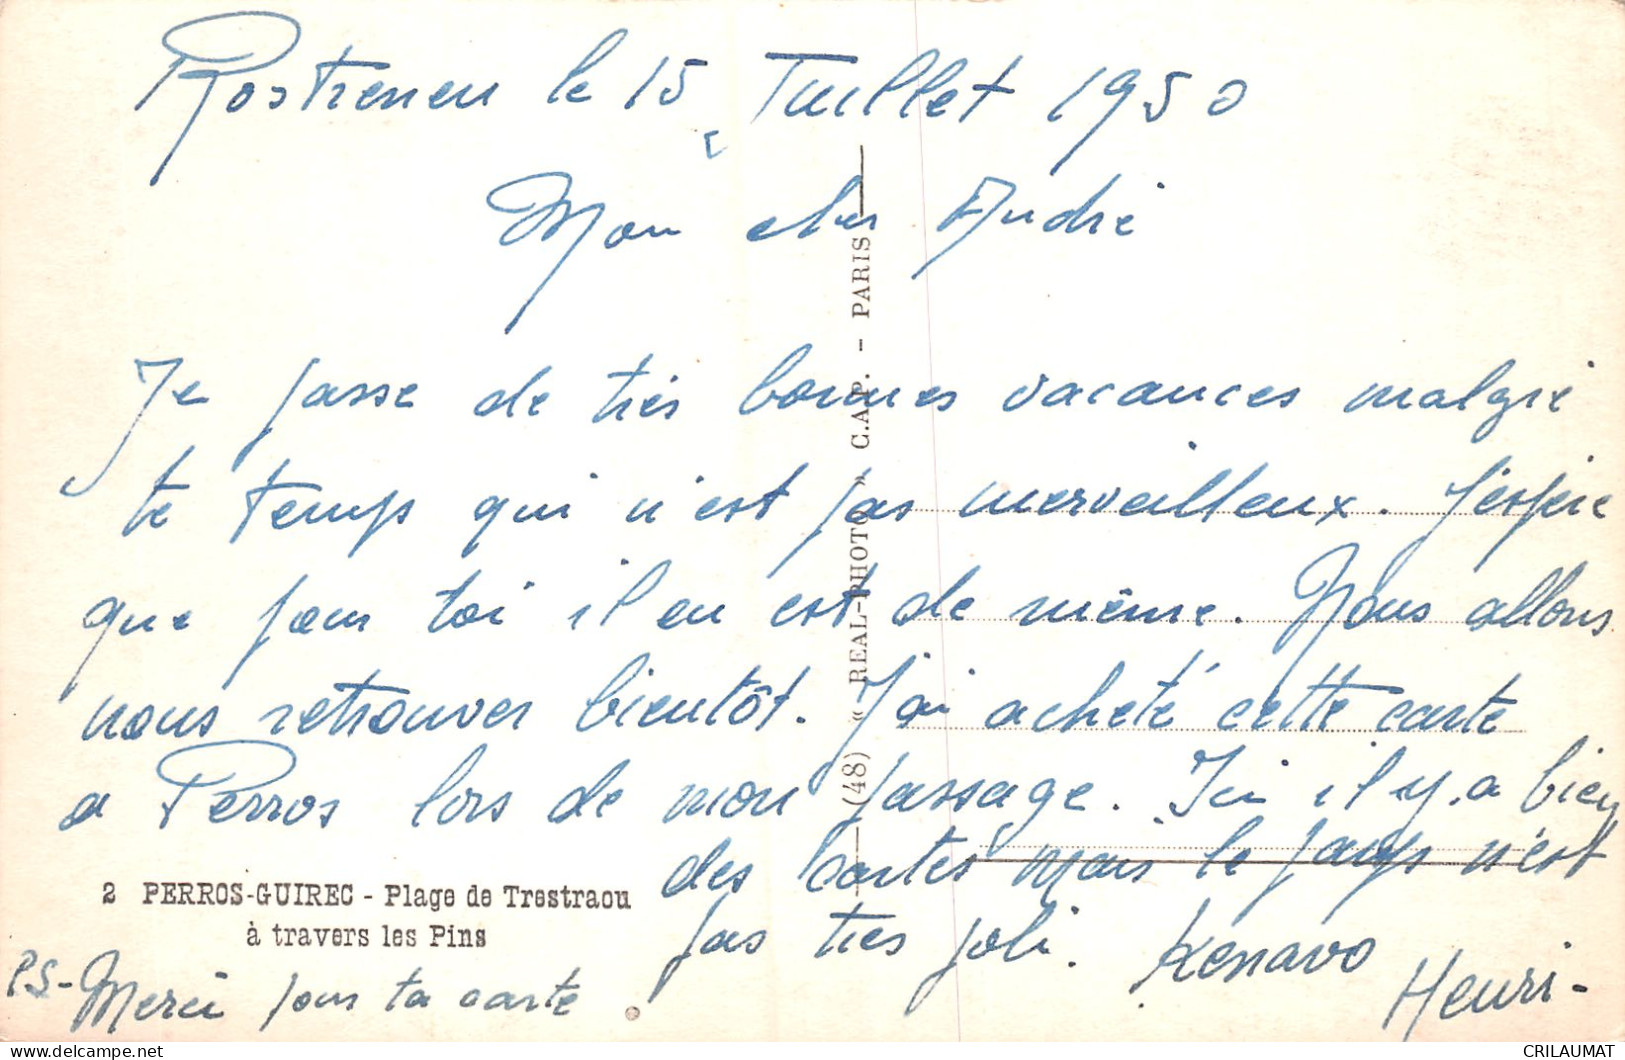 Rostrenen le 15 Juillet 1950
Mon cher André
Je passe de très bonnes vacances malgré
le temps qui n'est pas merveilleux. J'espère
que pour toi il en est de même. Nous allons
nous retrouver bientôt. J'ai acheté cette carte
a Perros lors de mon passage. Ici il y a bien
des cartes mais le pays n'est
pas très joli. Kenavo
Henri-
PS- Merci pour ta carte.
2 PERROS-GUIREC - Plage de Trestraou
à travers les Pins
(48) « REAL-PHOTO » C.A.P. - PARIS
CRILAUMAT
delcampe.net